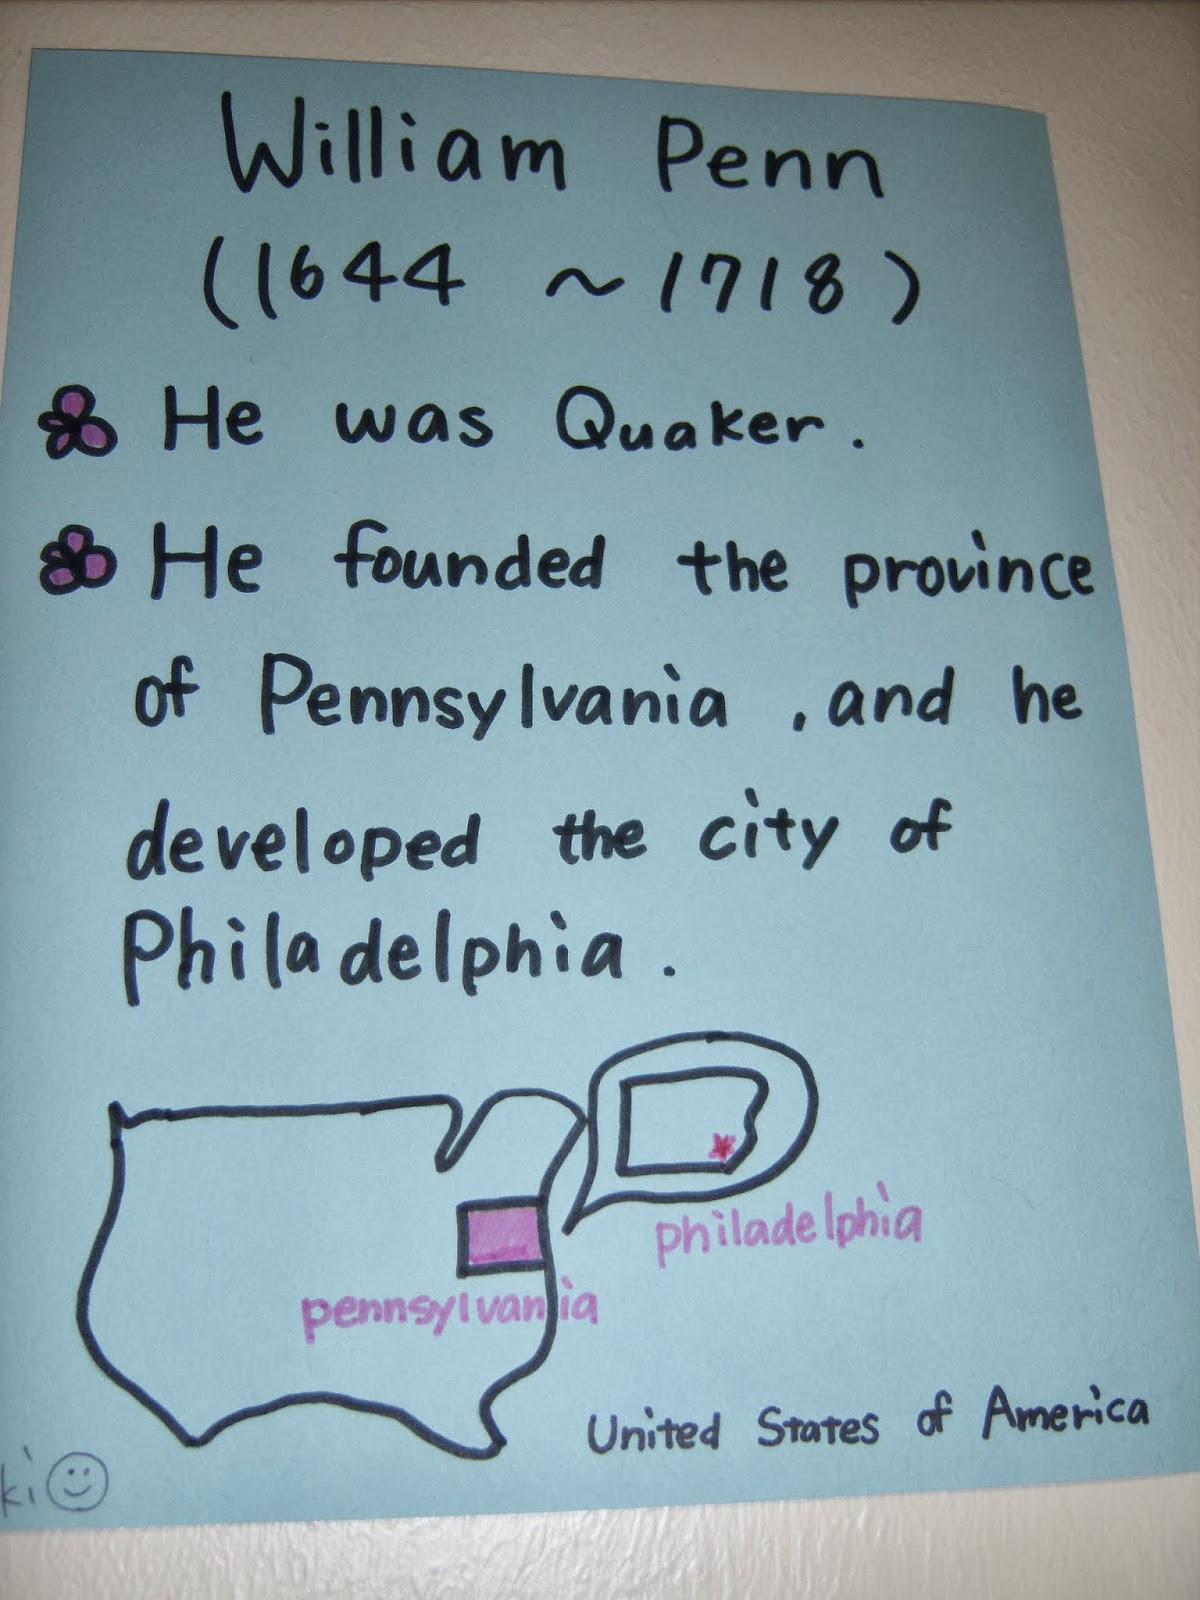 William Penn
(1644 ~ 1718)
He was Quaker.
He founded the province
of Pennsylvania , and he
developed the city of
Philadelphia.
philadelphia
pennsylvania
United States of America
ki